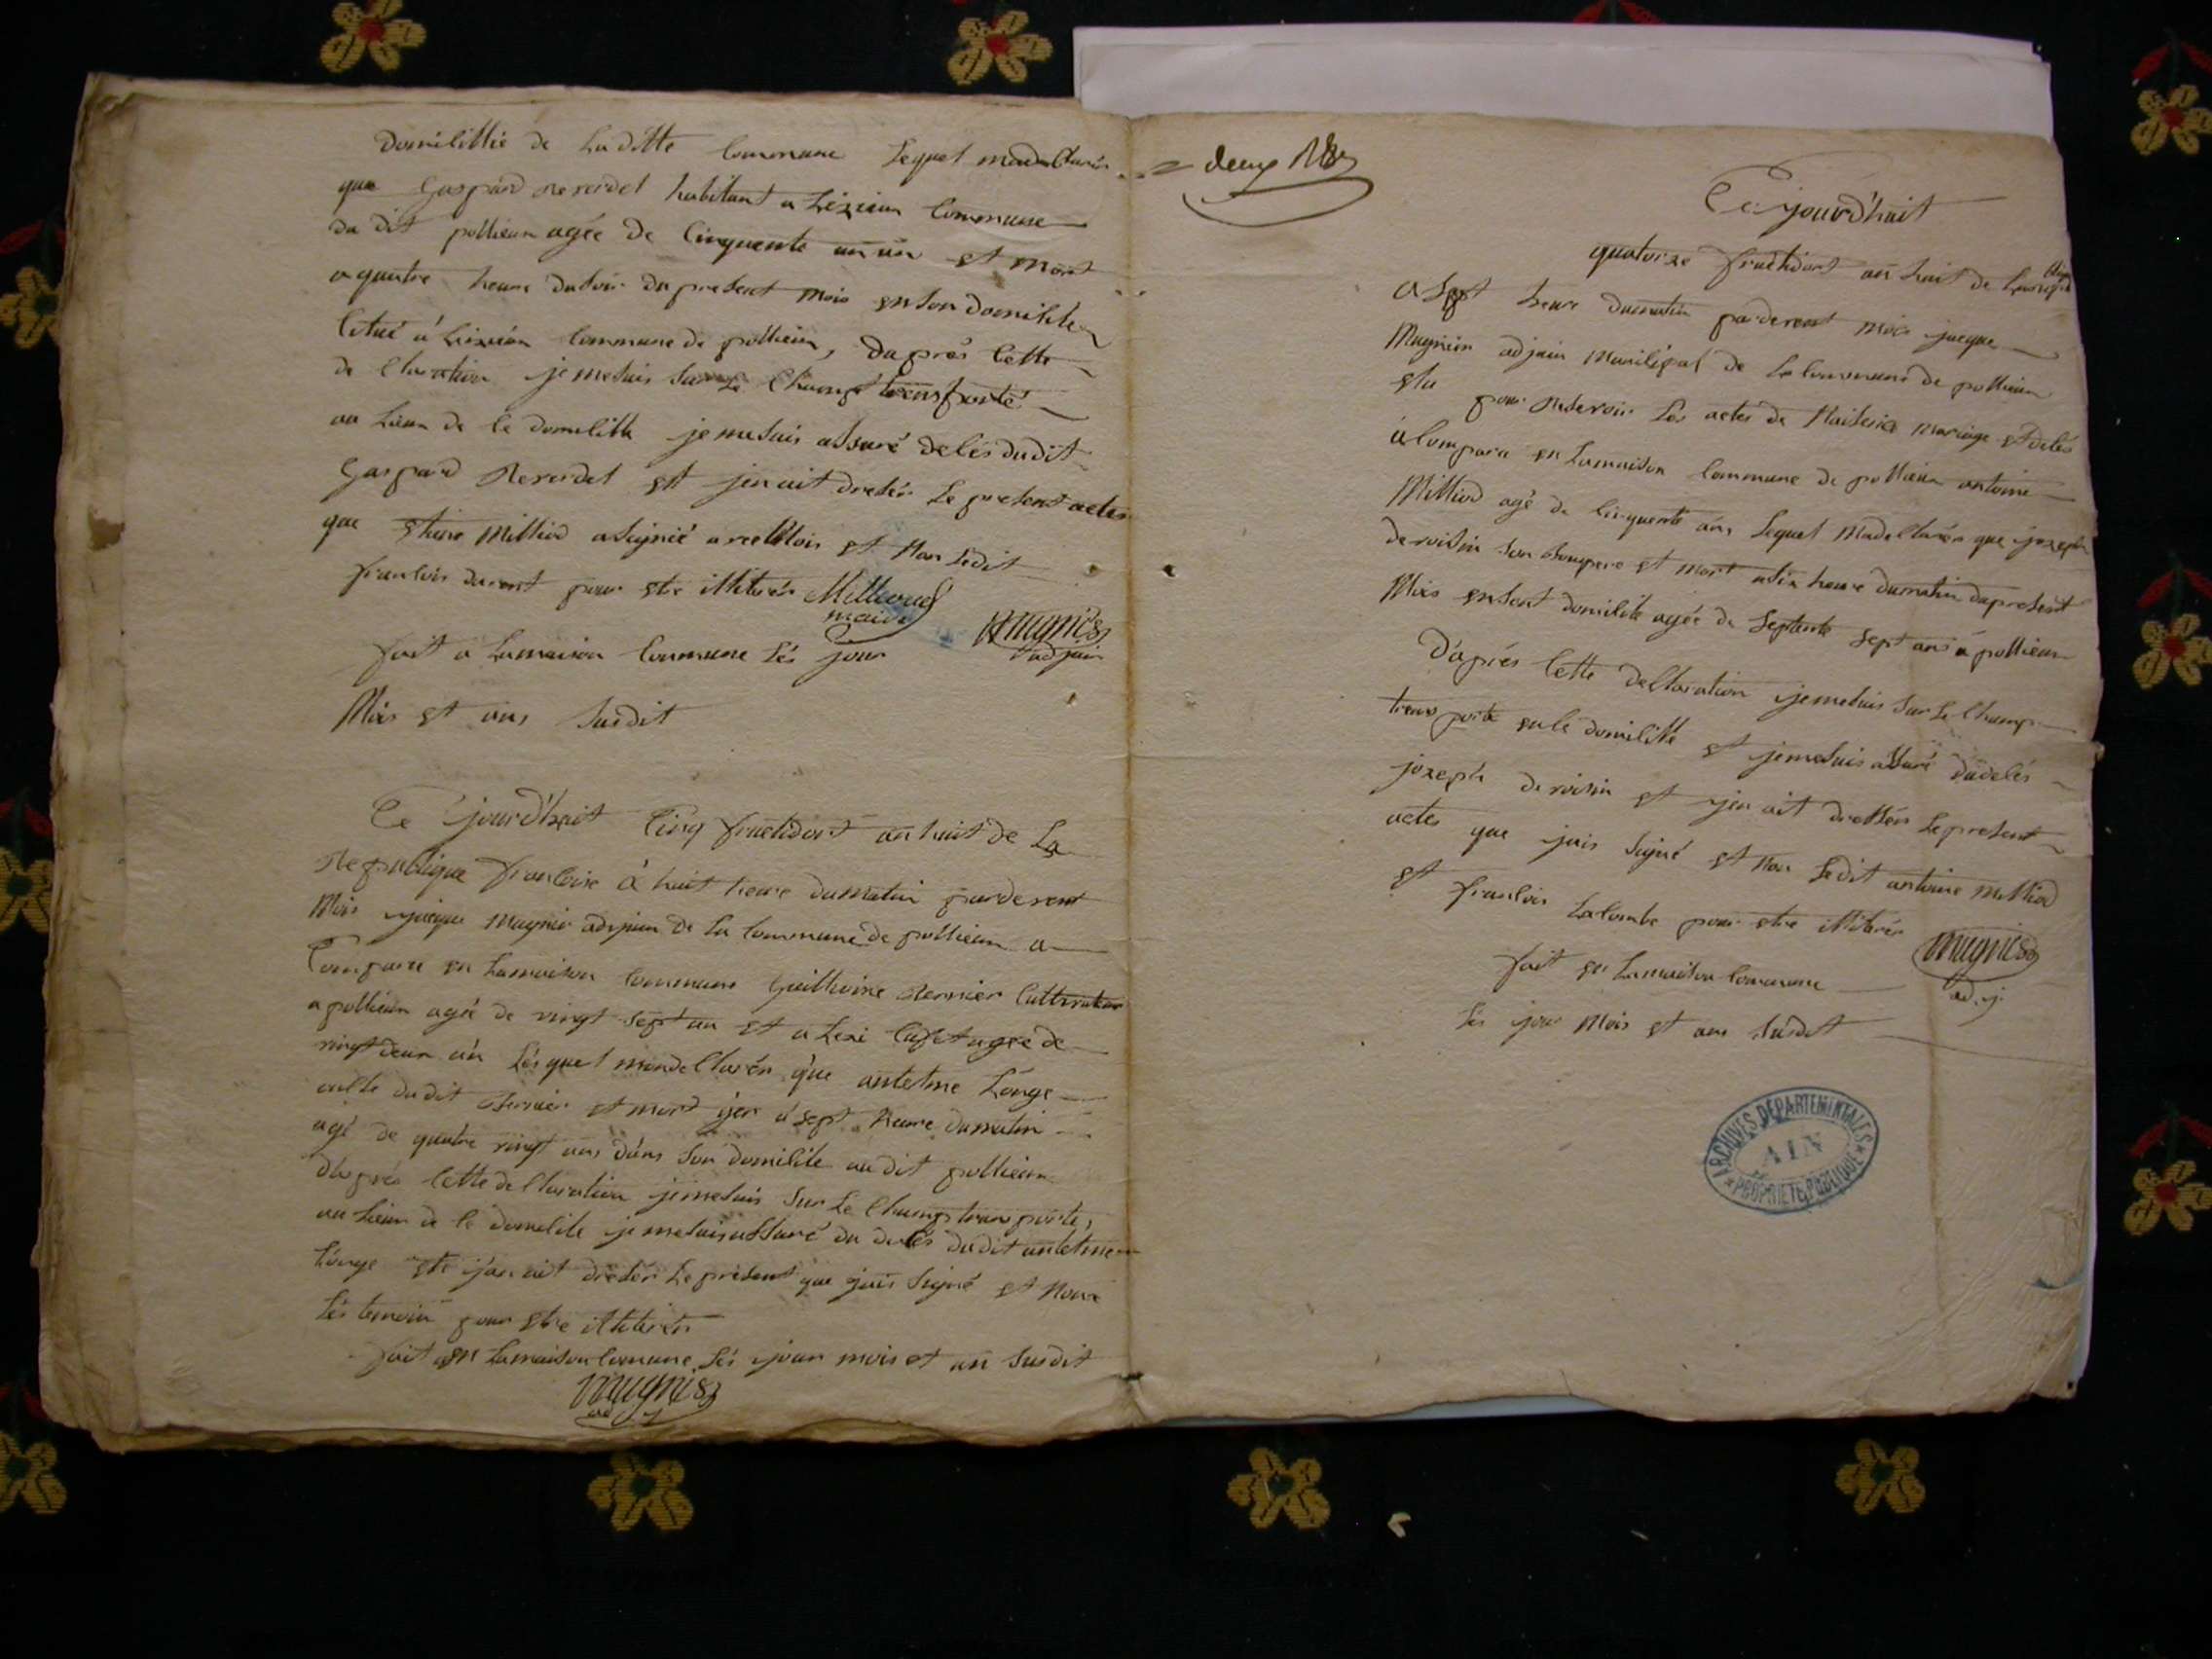 Domilitlié de Laditte Commune Lequel madeclarér
que Gaspard Reverdel habitant a Lizieu Commune
du dit pollieu agée de Cinquente un an et mort
a quatre heure dusoir du present mois enson domilile
Citué a Lizieu Commune de pollieu, daprés Cette
de Claration jemesuis surle Champ transporté
au Lieux de le domilille je mesuis assuré delés dudit
Gaspard Reverdel et jenait dresér Le present actes
que Milliod asignié avec Mois et Non Ledit
francois durent pour etre illiterér Millioud
maire
Magnier
adjoin
fait a Lamaison Commune Lés jour
Mois et ans Susdit
Ce jourd'huit Cinq fructidort an huit de La
Republique francoise à huit heure dumatin pardevent
Mois jacque Magnier adjoin de La Commune de pollieu a
Comparu en Lamaison Commune Guilliome Bernier Cultivateur
a pollieu agée de vingt sept an et agée de
vingt deux an Lésquel mondeclarér que antelme Longe
oncle dudit Bernier et mord ijer a sept heure dumatin
agé de quatre vingt ans dans son domilile au dit pollieu
daprés Cette declaration jemesuis sur Le Champ transporté
au Lieux de le domilile je mesuis assuré du delés dudit antelme
Longe et j'en ait dresér Le present que jais Signé et Nonn
Lés temoin pour etre illiterér
fait en Lamaison Comune Lés jour mois et an Susdit
Magnier
adj
deux
Ce jourd'huit
quatorze fructidort an huit de
a sept heure dumatin pardevent mois jacque
Magnier adjoin Municipal de La Commune de pollieu
elu pour Reservoir Les actes de Naisence mariage et delés
a Comparu en Lamaison Commune de pollieu antoine
Milliod agé de Cinquente ans Lequel Madeclarér que jozeph
dervoisin son Boupere et mort a six heure dumatin dupresent
Mois enson domilile agée de Septente sept ans a pollieu
D'aprés Cette declaration jemesuis sur Le Champ
transporte enle domilille et jemesuis assuré dudelés
jozeph dervoisin et jen ait dressér Lepresent
actes que jais Signé et Non Ledit antoine Milliod
et francois Lacombe pour etre illiterér
Magnier
adj.
fait en Lamaison Commune
Lés jour Mois et ans Susdit
ARCHIVES DÉPARTEMENTALES
AIN
PROPRIÉTÉ PUBLIQUE